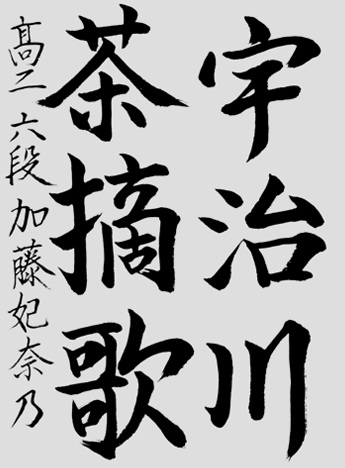 宇治川
茶摘歌
高二 六段 加藤妃奈乃